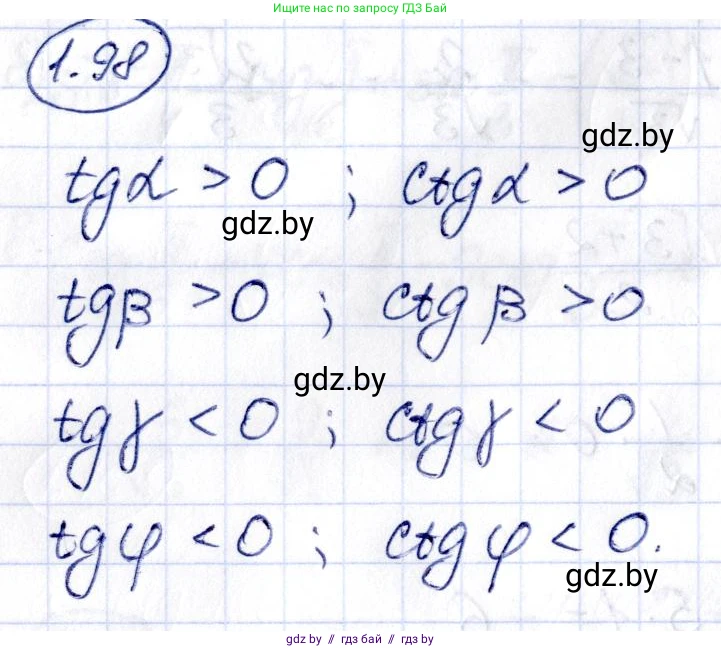 Ищите нас по запросу ГДЗ Бай
1.98
gdz.by
tgα > 0 ; ctgα > 0
gdz.by
tgβ > 0 ; ctgβ > 0
gdz.by
tgγ < 0 ; ctgγ < 0
tgφ < 0 ; ctgφ < 0.
gdz.by
gdz by // гдз бай // гдз by